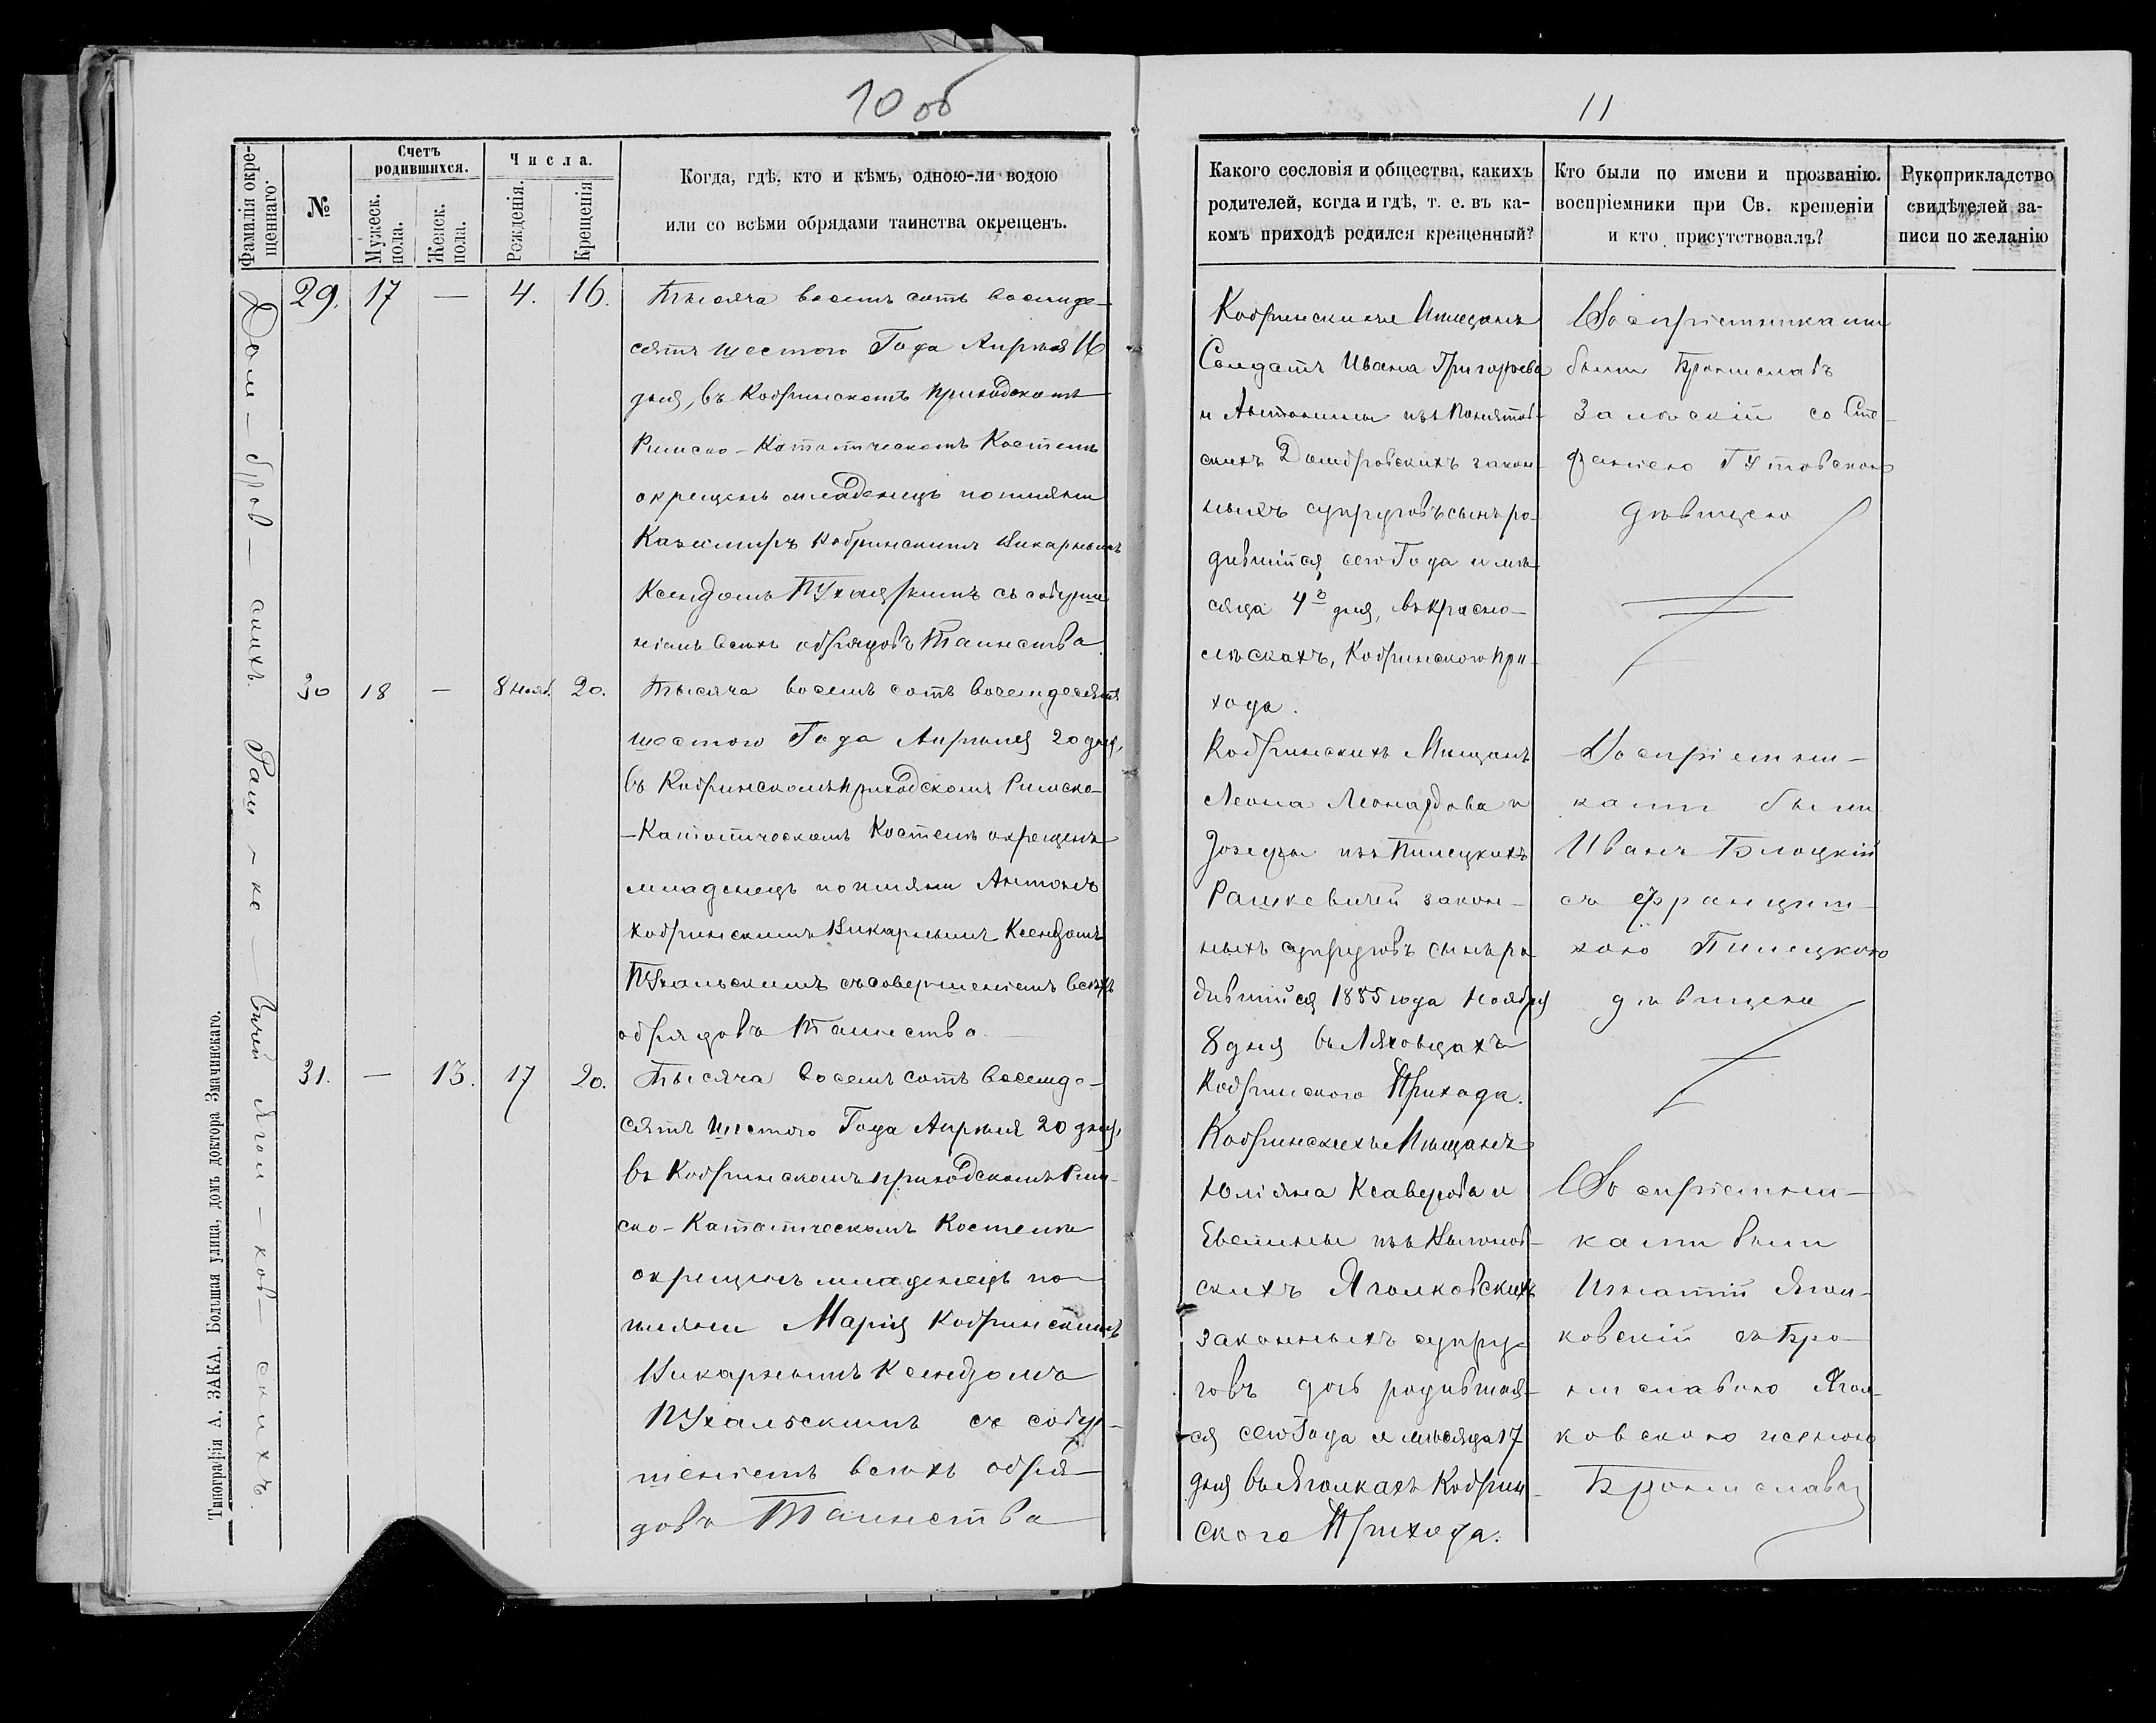 10 об
11
Фамилія окре-
щеннаго.
№
Счетъ
родившихся.
Мужеск.
пола.
Женск.
пола.
Числа.
Рожденія.
Крещенія
Когда, гдѣ, кто и кѣмъ, одною-ли водою
или со всѣми обрядами таинства окрещенъ.
Какого сословія и общества, какихъ
родителей, когда и гдѣ, т. е. въ ка-
комъ приходѣ родился крещенный?
Кто были по имени и прозванію.
воспріемники при Св. крещеніи
и кто присутствовалъ?
Рукоприкладство
свидѣтелей за-
писи по желанію
Дом-бров-скихъ.
29. 17 — 4. 16.
Тысяча восемь сотъ восемьде-
сятъ шестого Года Апрѣля 16
дня, въ Кобринскомъ приходскомъ
Римско-Католическомъ Костелѣ
окрещенъ младенецъ по имени
Казимиръ Кобринскимъ Викарнымъ
Ксендзомъ съ соверше
ніемъ всѣхъ обрядовъ Таинства.
Солдатъ Ивана Григорьева
и Антонины изъ Понятов-
скихъ Домбровскихъ закон-
ныхъ супруговъ сынъ ро-
дившійся сего Года и мѣ-
сяца 4го дня, въ Красно-
Кобринского При-
хода.
Воспріемниками
были Брониславъ
Залѣскій со Сте-
фаніею Гутовскою
дѣвицею
Раш-ке-вичей
30 18 — 8 Нояб. 20.
Тысяча восемь сотъ восемдесятъ
шестого Года Апрѣля 20 дня,
въ Кобринскомъ приходскомъ Римско-
-Католическомъ Костелѣ окрещенъ
младенецъ по имени Антонъ
Кобринскимъ Викарнымъ Ксендзомъ
Пухальскимъ съ совершеніемъ всѣхъ
обрядовъ Таинства.
Кобринскихъ Мѣщанъ
Леона Леонардова и
Іозефы изъ Пилецкихъ
Рашкевичей закон-
ныхъ супруговъ сынъ ро
дившійся 1885 года Ноября
8 дня въ Ляховцахъ
Кобринского Прихода.
Воспріемни-
ками были
Иванъ Блоцкій
съ Францишкою
Пилецкою
дѣвицею
Ягол-ков-скихъ.
31. — 13. 17 20.
Тысяча восемь сотъ восемде-
сятъ шестого Года Апрѣля 20 дня,
въ Кобринскомъ приходскомъ Рим-
ско-Католическомъ Костелѣ
окрещенъ младенецъ по
имени Марія Кобринскимъ
Викарнымъ Ксендзомъ
Пухальскимъ съ совер-
шеніемъ всѣхъ обря-
довъ Таинства
Кобринскихъ Мѣщанъ
Юліяна Ксаверова и
скихъ Яголковскихъ
законныхъ супру-
говъ дочь родившая-
ся сего Года и мѣсяца 17
дня въ Яголкахъ Кобрин-
ского Прихода.
Воспріемни-
ками были
Игнатій Ягол-
ковскій съ Бро-
ниславою Ягол-
ковскою женою
Бронислава
Типографія А. ЗАКА, Большая улица, домъ доктора Змачинскаго.